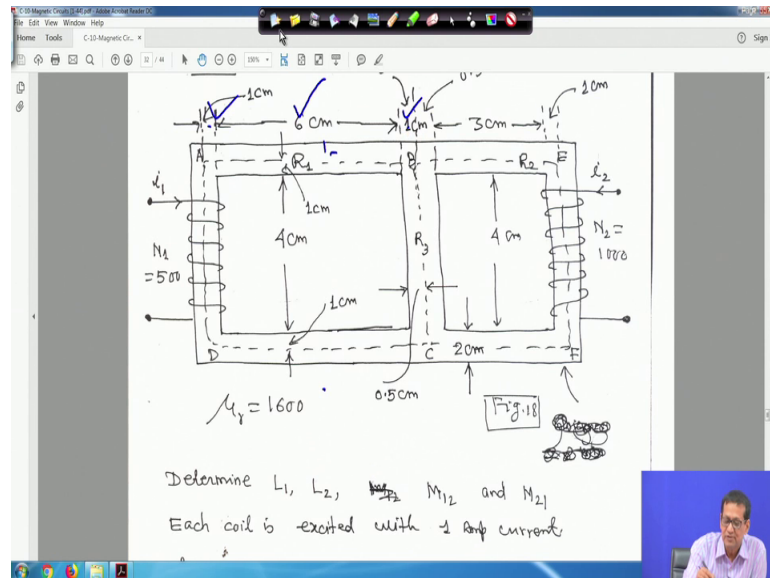 C-10-Magnetic Circuits [1-44].pdf - Adobe Acrobat Reader DC
File Edit View Window Help
Home Tools C-10-Magnetic Cir... × Sign
32 / 44 150%
1cm 1cm
6 cm 1cm 3 cm
A R1 B R2 E
i1 1cm i2
4cm R3 4cm
N1 =500 N2= 1000
1cm
D C 2cm F
0.5cm
μr = 1600 Fig.18
Determine L1, L2, M12 and M21
Each coil is excited with 1 Amp current